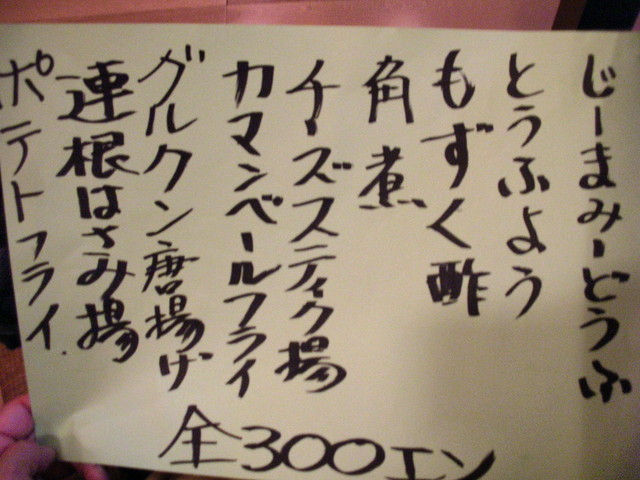 じーまみーどうふ
とうふよう
もずく酢
角煮
チーズスティック揚
カマンベールフライ
グルクン唐揚げ
連根はさみ揚
ポテトフライ.
全300エン